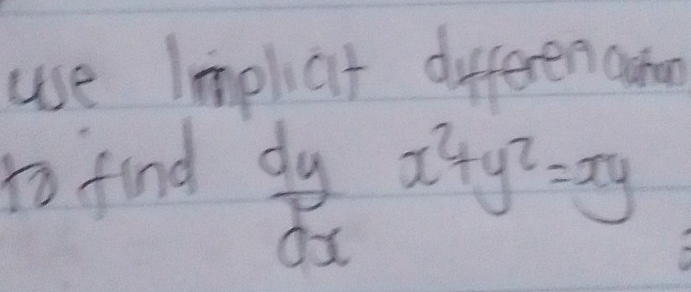 use Implicit differenciation
to find dy/dx x²+y²=xy